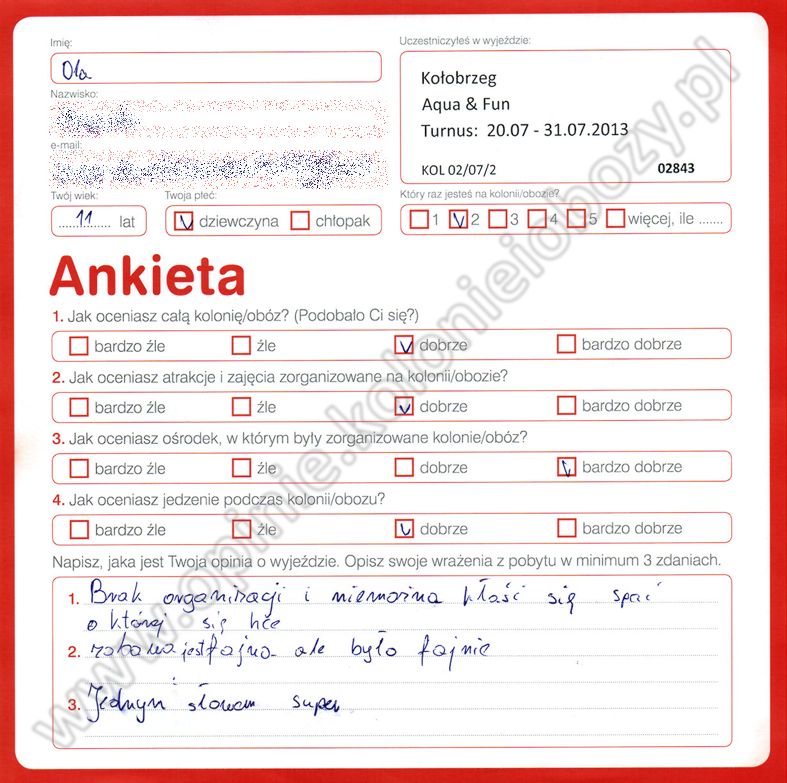 Imię:
Ola
Uczestniczyłeś w wyjeździe:
Kołobrzeg
Aqua & Fun
Turnus: 20.07 - 31.07.2013
KOL 02/07/2 02843
Nazwisko:
e-mail:
Twój wiek:
11 lat
Twoja płeć:
dziewczyna chłopak
Który raz jesteś na kolonii/obozie?
1 2 3 4 5 więcej, ile .......
Ankieta
1. Jak oceniasz całą kolonię/obóz? (Podobało Ci się?)
bardzo źle źle dobrze bardzo dobrze
2. Jak oceniasz atrakcje i zajęcia zorganizowane na kolonii/obozie?
bardzo źle źle dobrze bardzo dobrze
3. Jak oceniasz ośrodek, w którym były zorganizowane kolonie/obóz?
bardzo źle źle dobrze bardzo dobrze
4. Jak oceniasz jedzenie podczas kolonii/obozu?
bardzo źle źle dobrze bardzo dobrze
Napisz, jaka jest Twoja opinia o wyjeździe. Opisz swoje wrażenia z pobytu w minimum 3 zdaniach.
1. Brak organizacji i niemożna kłaść się spać
o której się hce
2. jest fajna ale było fajnie
3. Jednym słowem super
www.opinie.kolonieiobozy.pl